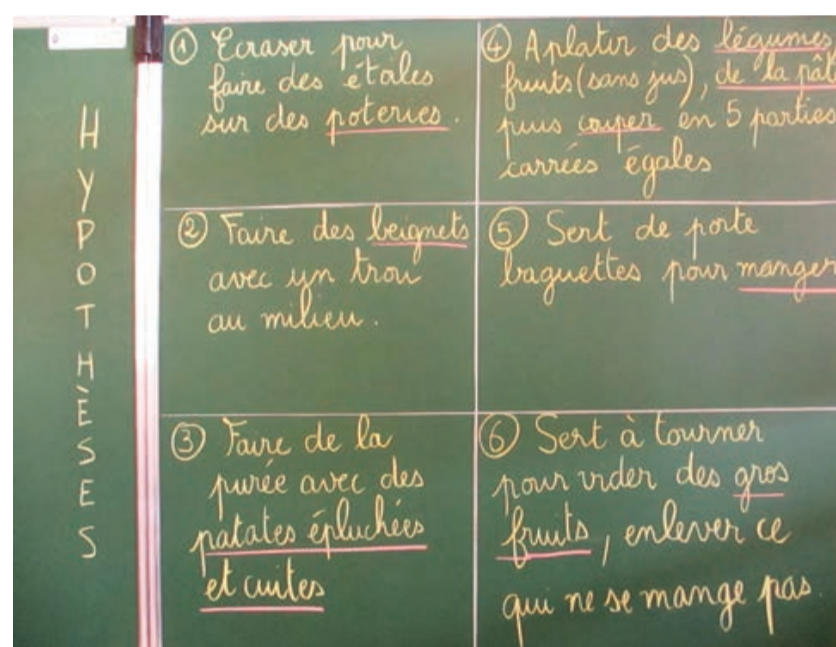 HYPOTHÈSES
① Ecraser pour
faire des étoiles
sur des poteries.
② Faire des beignets
avec un trou
au milieu.
③ Faire de la
purée avec des
patates épluchées
et cuites
④ Aplatir des légumes
fruits (sans jus), de la pât
puis couper en 5 parties
carrées égales
⑤ Sert de porte
baguettes pour manger
⑥ Sert à tourner
pour vider des gros
fruits, enlever ce
qui ne se mange pas.